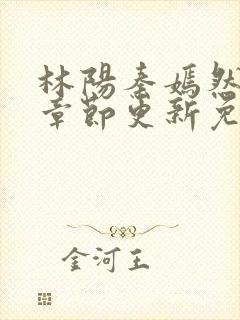 林陽秦嫣然
章節更新免
金河王